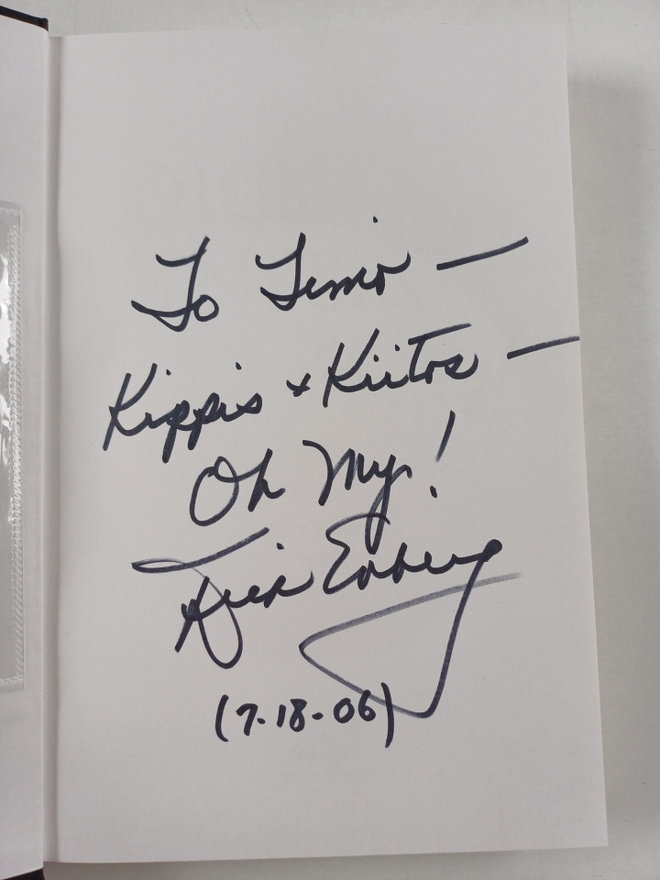 To Timo —
Kippis + Kiitos —
Oh My!
Dick Enberg
(7-18-06)